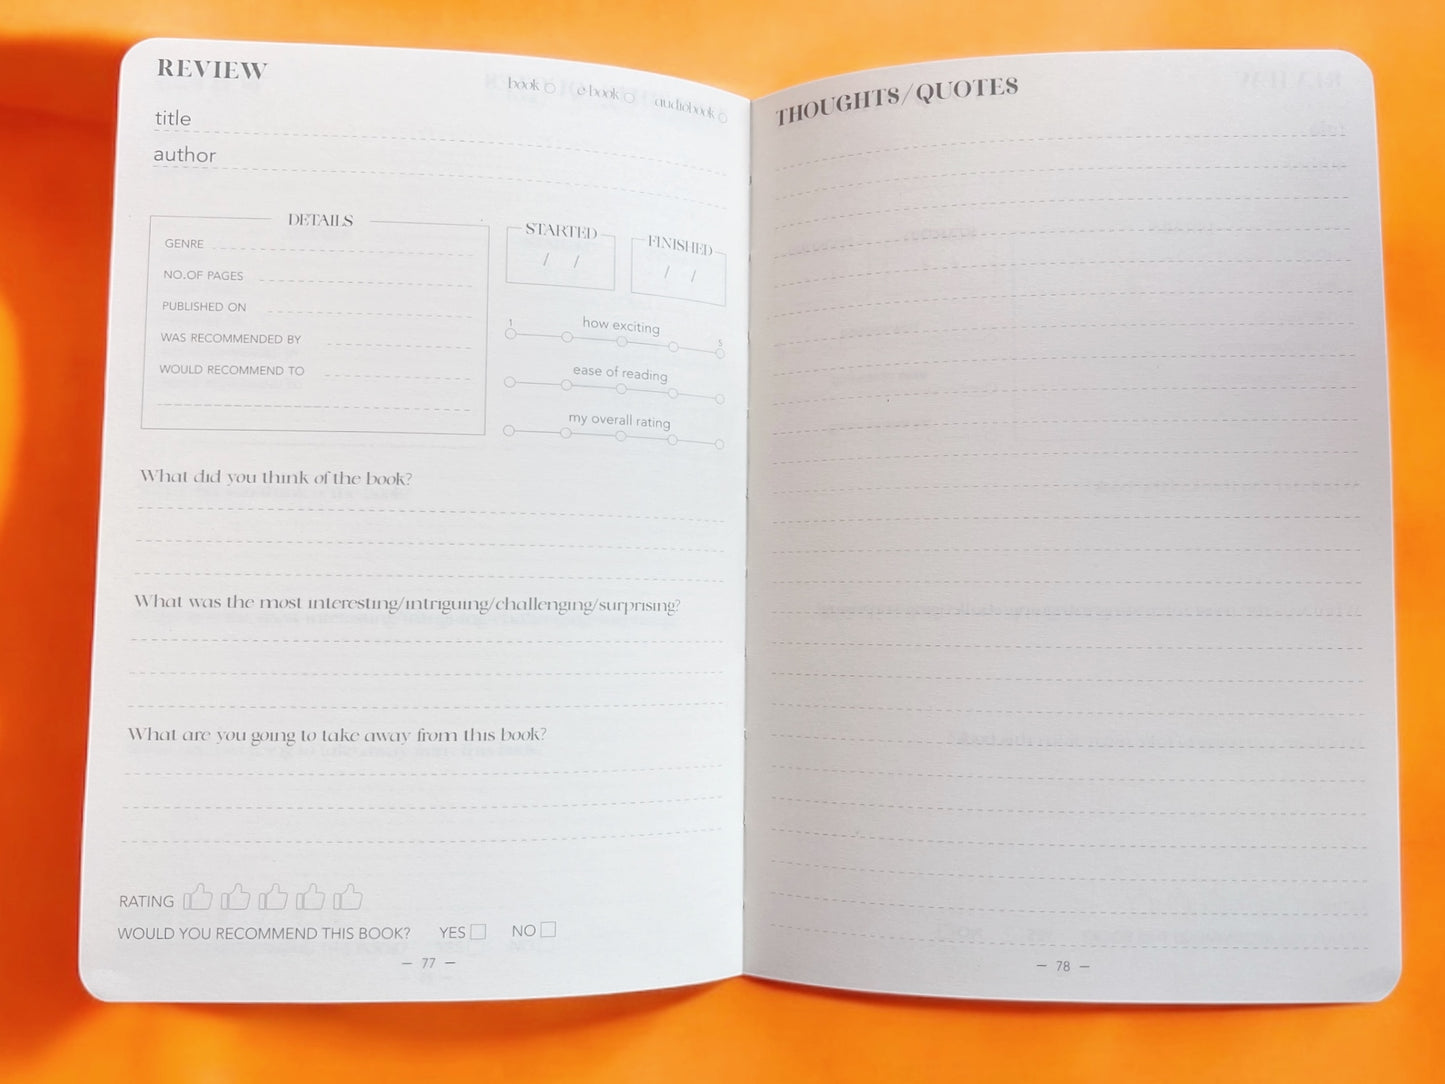 REVIEW
book e-book audiobook
title
author
DETAILS
GENRE
NO.OF PAGES
PUBLISHED ON
WAS RECOMMENDED BY
WOULD RECOMMEND TO
STARTED
/ /
FINISHED
/ /
how exciting
1 5
ease of reading
my overall rating
What did you think of the book?
What was the most interesting/intriguing/challenging/surprising?
What are you going to take away from this book?
RATING
WOULD YOU RECOMMEND THIS BOOK? YES NO
— 77 —
THOUGHTS/QUOTES
— 78 —